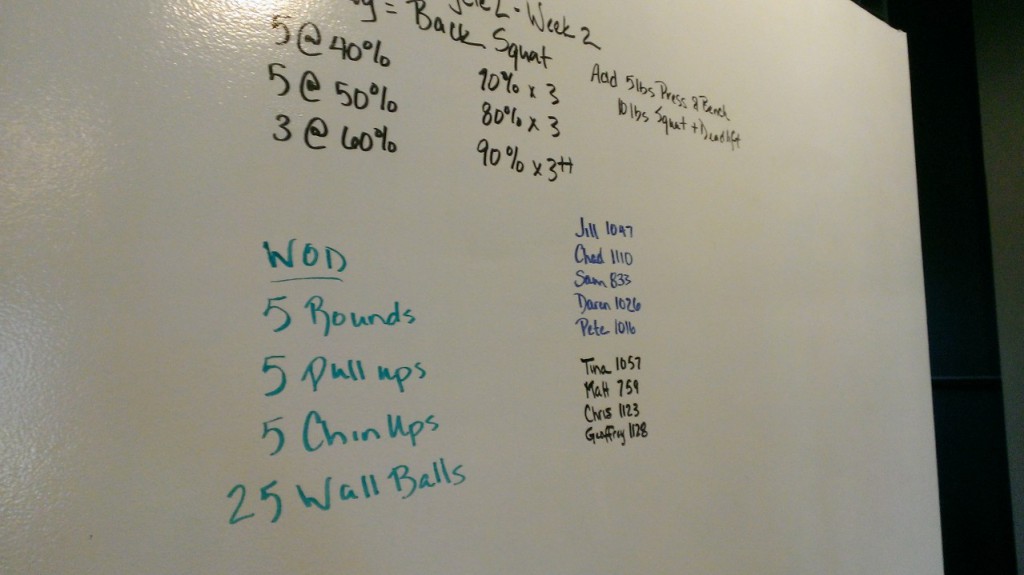 = Back Squat
Week 2
5 @ 40%
5 @ 50%
3 @ 60%
70% x 3
80% x 3
90% x 3++
Add 5lbs Press & Bench
10lbs Squat + Deadlift
WOD
5 Rounds
5 Pull ups
5 Chin Ups
25 Wall Balls
Jill 1047
Chad 1110
Sam 833
Daren 1026
Pete 1016
Tina 1057
Matt 759
Chris 1123
Geoffrey 1128